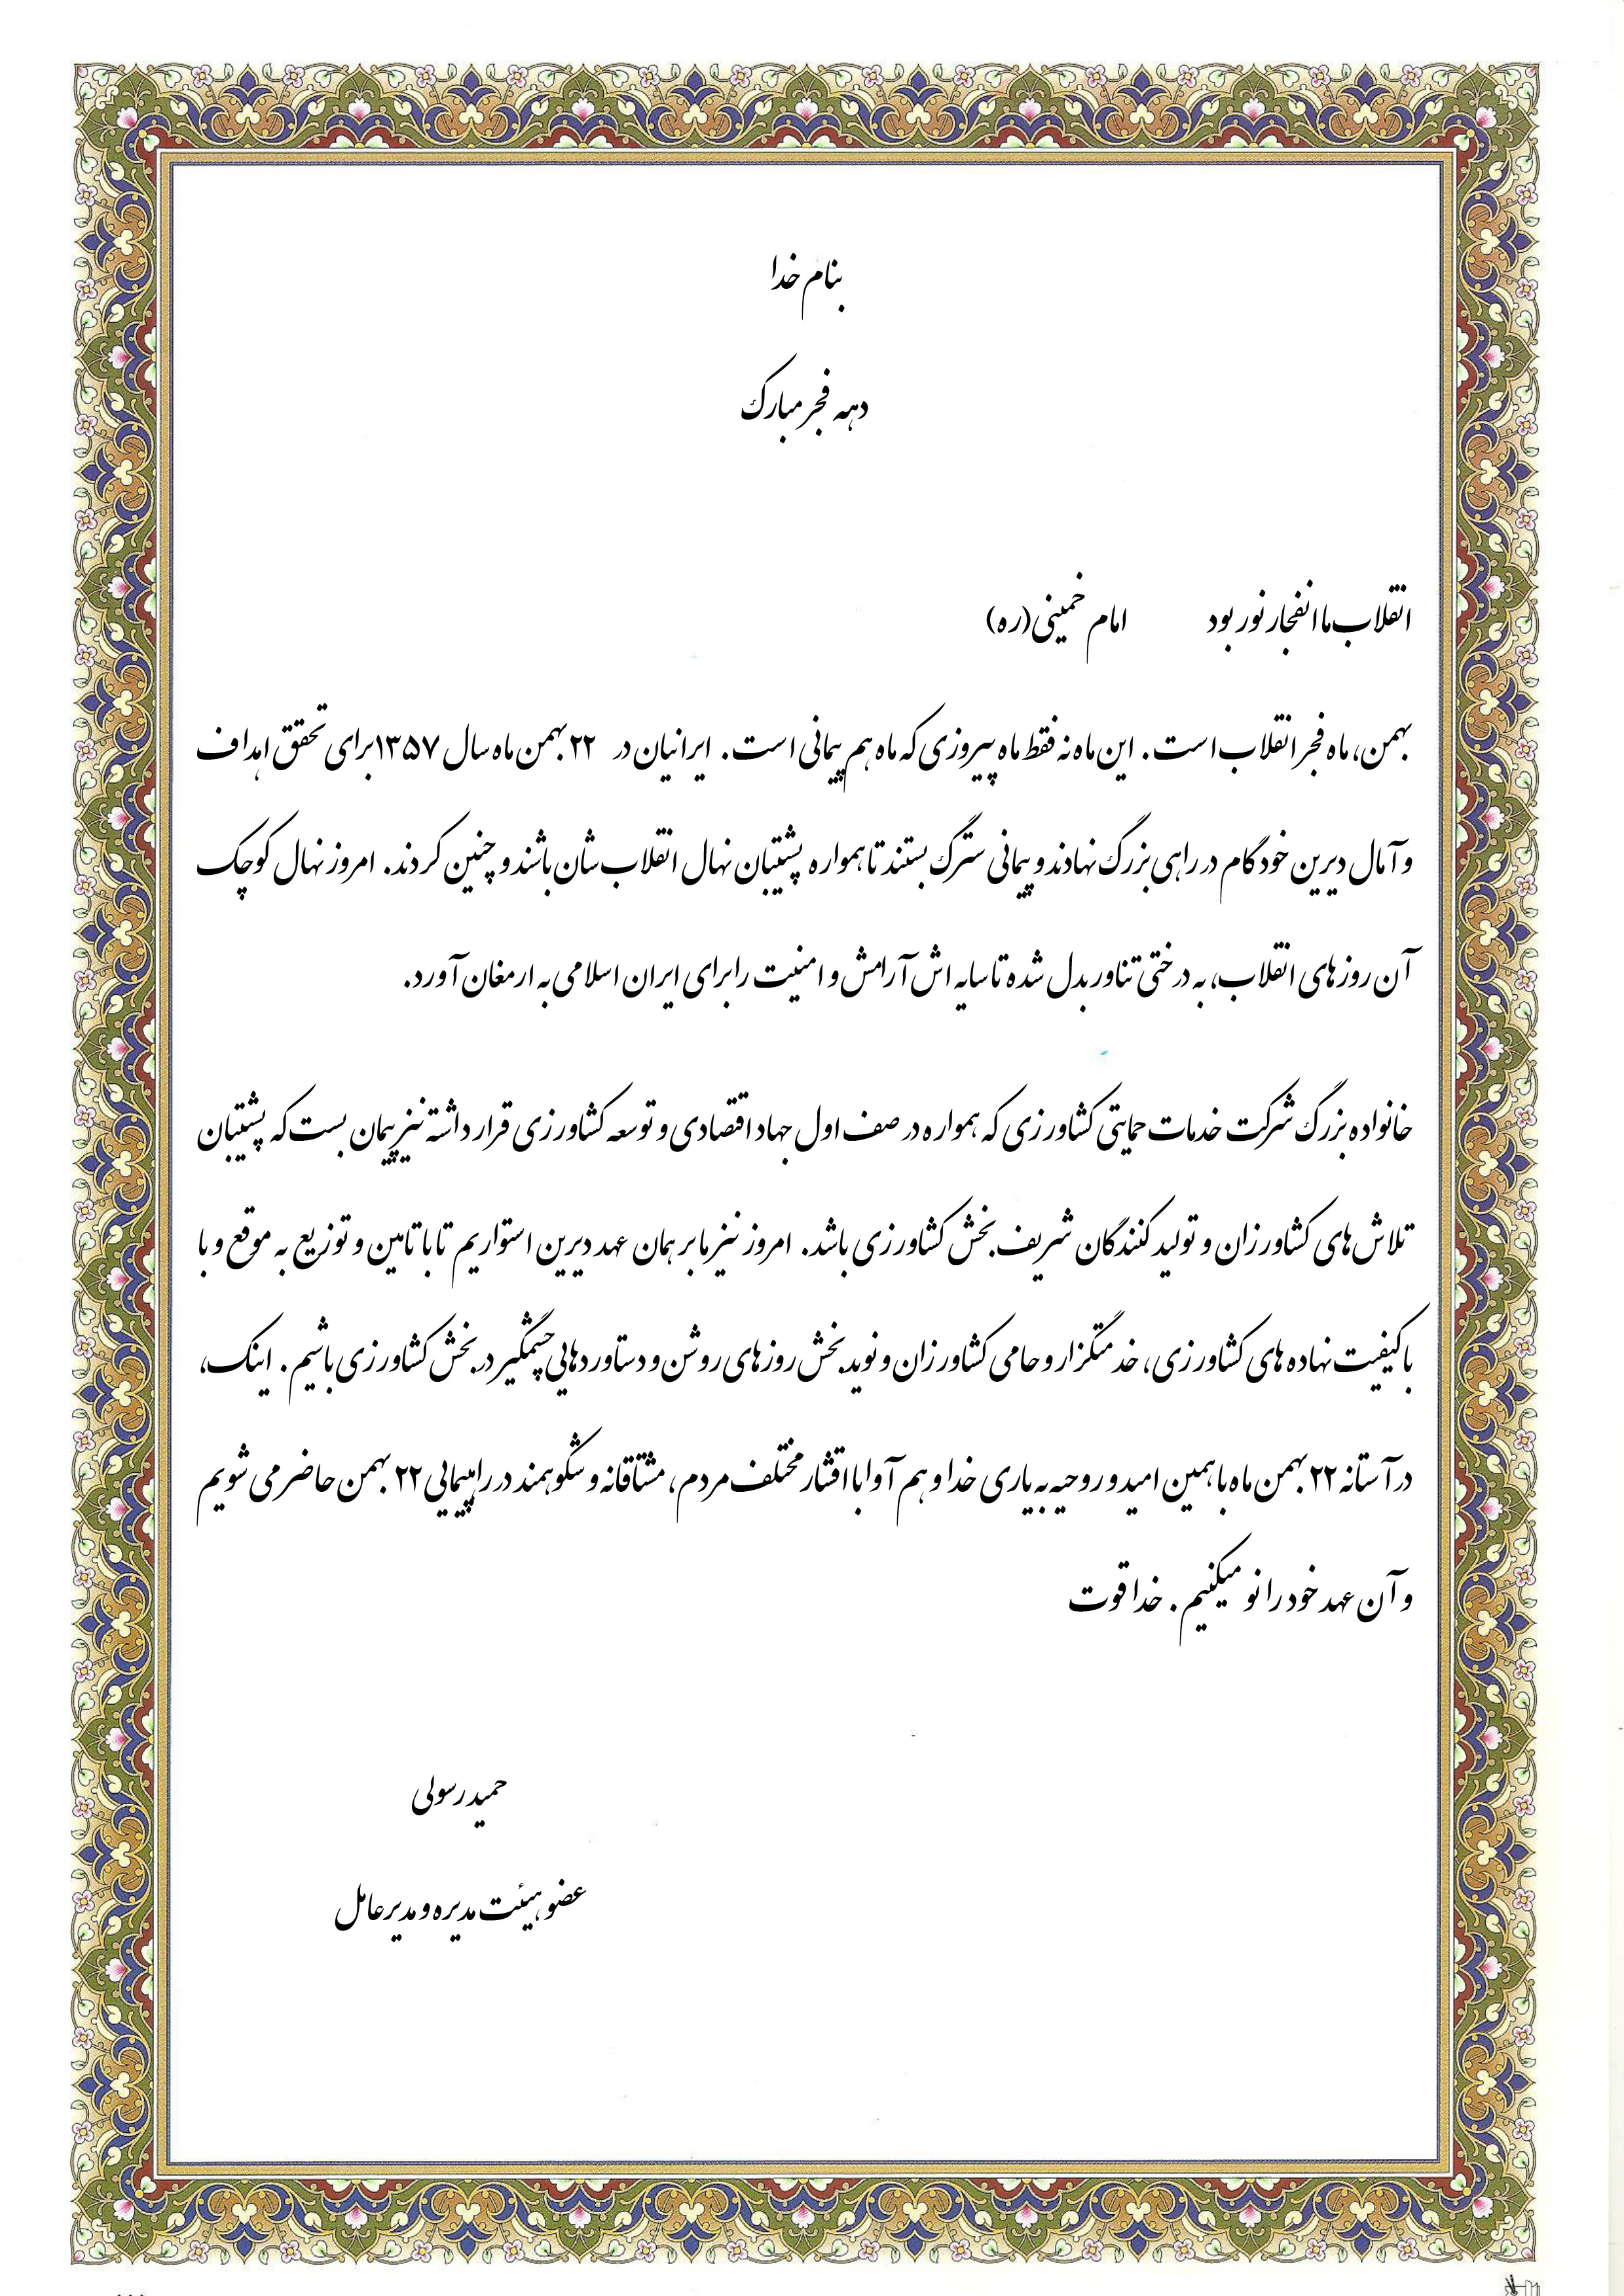 بنام خدا
دهه فجر مبارک
انقلاب ما انفجار نور بود امام خمینی(ره)
بهمن، ماه فجر انقلاب است. این ماه نه فقط ماه پیروزی که ماه هم پیمانی است. ایرانیان در ۲۲ بهمن ماه سال ۱۳۵۷ برای تحقق اهداف
و آمال دیرین خود گام در راهی بزرگ نهادند و پیمانی سترگ بستند تا همواره پشتیبان نهال انقلاب شان باشند و چنین کردند. امروز نهال کوچک
آن روزهای انقلاب، به درختی تناور بدل شده تا سایه اش آرامش و امنیت را برای ایران اسلامی به ارمغان آورد.
خانواده بزرگ شرکت خدمات حمایتی کشاورزی که همواره در صف اول جهاد اقتصادی و توسعه کشاورزی قرار داشته نیز پیمان بست که پشتیبان
تلاش های کشاورزان و تولید کنندگان شریف بخش کشاورزی باشد. امروز نیز ما بر همان عهد دیرین استواریم تا با تامین و توزیع به موقع و با
با کیفیت نهاده های کشاورزی، خدمتگزار و حامی کشاورزان و نوید بخش روزهای روشن و دستاوردهایی چشمگیر در بخش کشاورزی باشیم. اینک،
در آستانه ۲۲ بهمن ماه با همین امید و روحیه به یاری خدا و هم آوا با اقشار مختلف مردم، مشتاقانه و شکوهمند در راهپیمایی ۲۲ بهمن حاضر می شویم
و آن عهد خود را نو میکنیم. خدا قوت
حمید رسولی
عضو هیئت مدیره و مدیر عامل